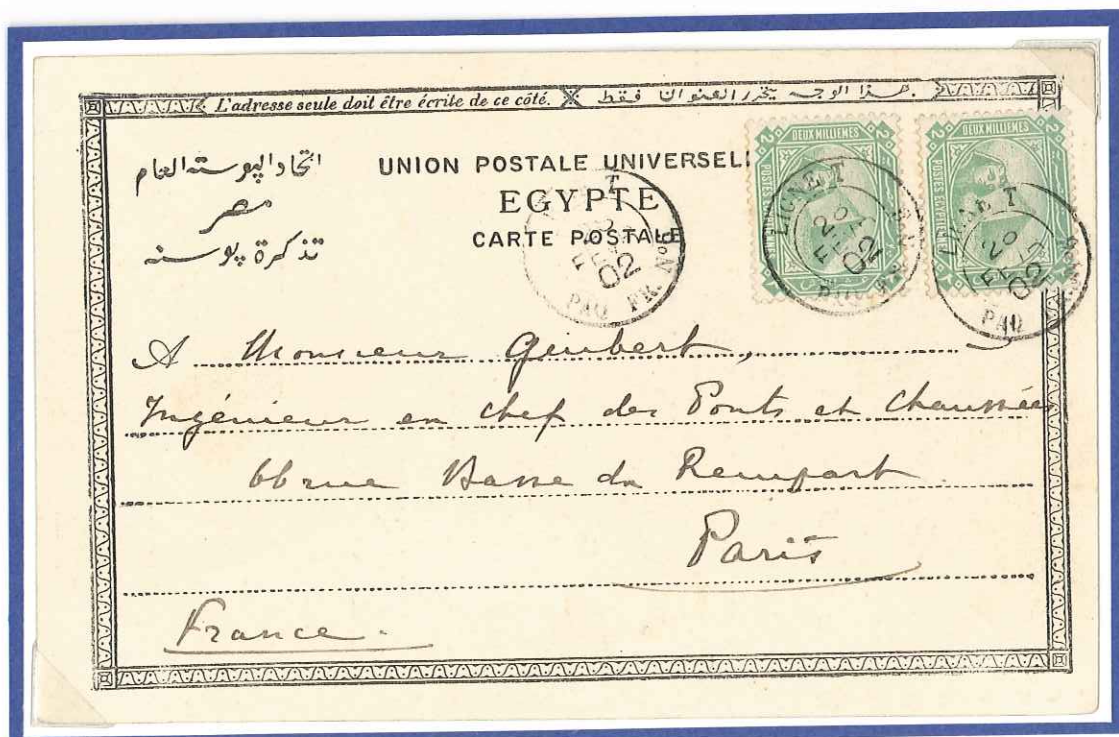 L'adresse seule doit être écrite de ce côté. هذا الوجه يحرر العنوان فقط.
اتحاد البوسته العام
مصر
تذكرة بوسته
UNION POSTALE UNIVERSELL
EGYPTE
CARTE POSTALE
2 DEUX MILLIEMES 2
POSTES EGYPTIENNES
2 DEUX MILLIEMES 2
POSTES EGYPTIENNES
LIGNE T
20
FEVR
02
PAQ. FR. Nº5
LIGNE T
20
FEVR
02
PAQ FR. Nº5
LIGNE T
20
FEVR
02
PAQ FR. Nº5
A Monsieur Guibert,
Ingénieur en chef des Ponts et Chaussées
66 rue Basse du Rempart
Paris
France.